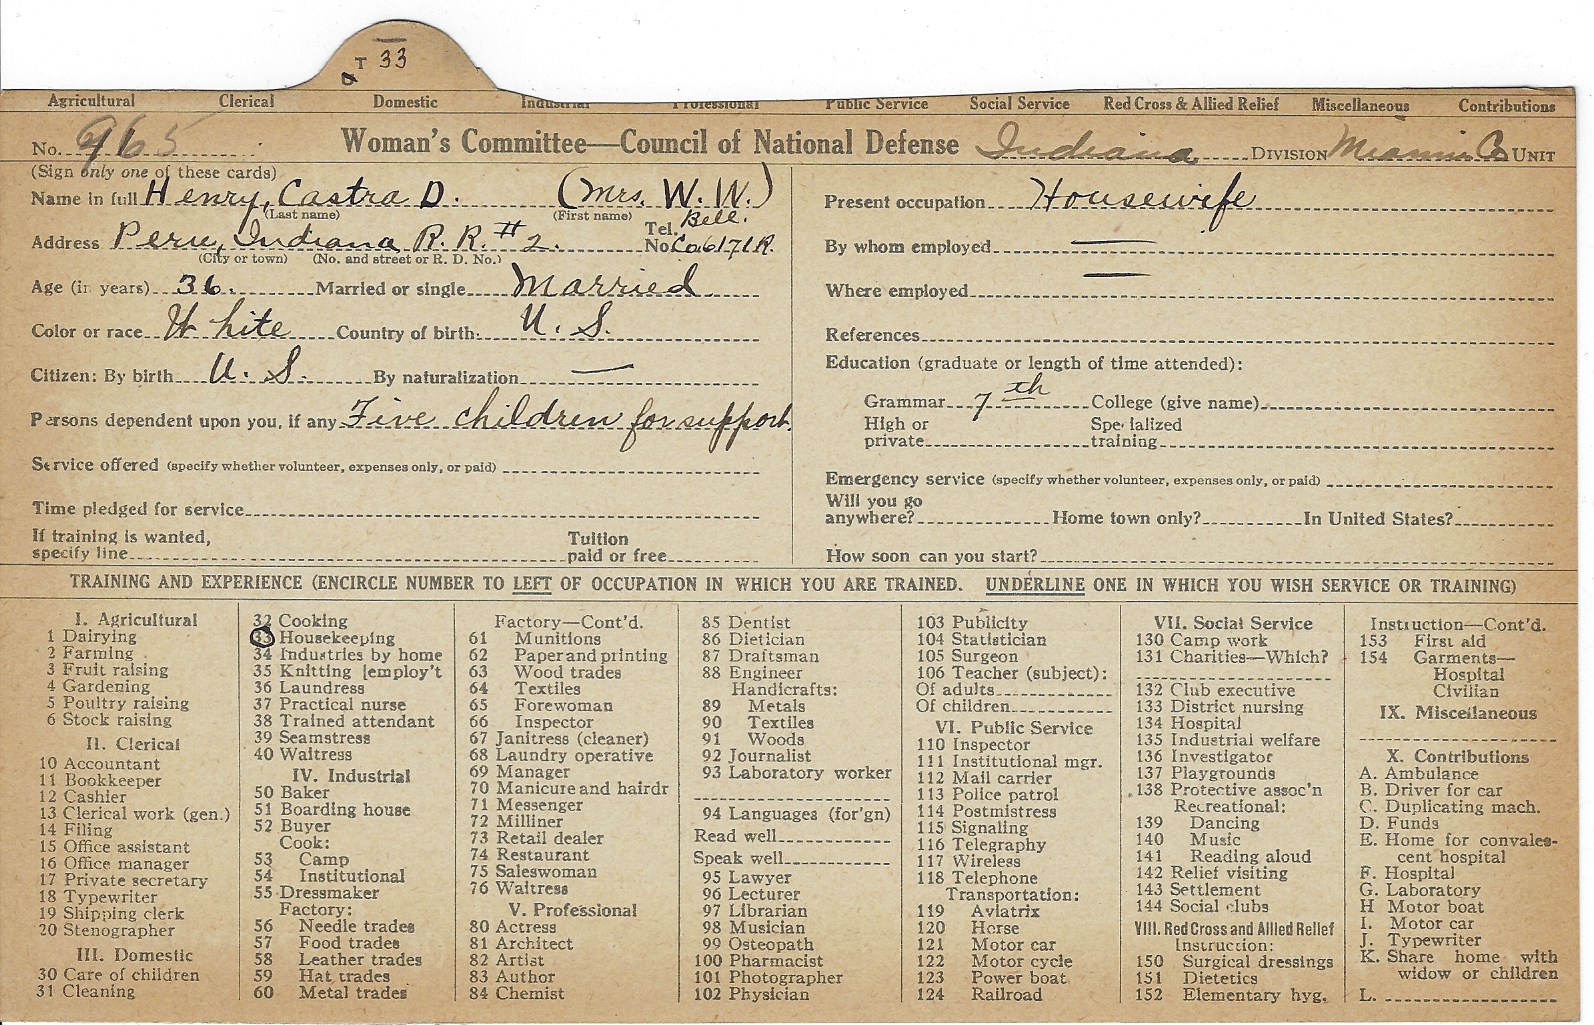 T 33
Agricultural Clerical Domestic Industrial Professional Public Service Social Service Red Cross & Allied Relief Miscellaneous Contributions
No. 965 Woman's Committee—Council of National Defense Indiana DIVISION Miami Co UNIT
(Sign only one of these cards)
Name in full Henry, Castra D. (Mrs. W. W.)
(Last name) (First name)
Address Peru, Indiana R. R. #2. Tel. No. Bell. Co. 6171R.
(City or town) (No. and street or R. D. No.)
Age (in years) 36. Married or single Married
Color or race White Country of birth U. S.
Citizen: By birth U. S. By naturalization —
Persons dependent upon you, if any Five children for support.
Service offered (specify whether volunteer, expenses only, or paid)
Time pledged for service
If training is wanted,
specify line Tuition paid or free
Present occupation Housewife
By whom employed —
Where employed —
References
Education (graduate or length of time attended):
Grammar 7th College (give name)
High or private Specialized training
Emergency service (specify whether volunteer, expenses only, or paid)
Will you go
anywhere? Home town only? In United States?
How soon can you start?
TRAINING AND EXPERIENCE (ENCIRCLE NUMBER TO LEFT OF OCCUPATION IN WHICH YOU ARE TRAINED. UNDERLINE ONE IN WHICH YOU WISH SERVICE OR TRAINING)
I. Agricultural
1 Dairying
2 Farming
3 Fruit raising
4 Gardening
5 Poultry raising
6 Stock raising
II. Clerical
10 Accountant
11 Bookkeeper
12 Cashier
13 Clerical work (gen.)
14 Filing
15 Office assistant
16 Office manager
17 Private secretary
18 Typewriter
19 Shipping clerk
20 Stenographer
III. Domestic
30 Care of children
31 Cleaning
32 Cooking
33 Housekeeping
34 Industries by home
35 Knitting [employ't
36 Laundress
37 Practical nurse
38 Trained attendant
39 Seamstress
40 Waitress
IV. Industrial
50 Baker
51 Boarding house
52 Buyer
Cook:
53 Camp
54 Institutional
55 Dressmaker
Factory:
56 Needle trades
57 Food trades
58 Leather trades
59 Hat trades
60 Metal trades
Factory—Cont'd.
61 Munitions
62 Paper and printing
63 Wood trades
64 Textiles
65 Forewoman
66 Inspector
67 Janitress (cleaner)
68 Laundry operative
69 Manager
70 Manicure and hairdr
71 Messenger
72 Milliner
73 Retail dealer
74 Restaurant
75 Saleswoman
76 Waitress
V. Professional
80 Actress
81 Architect
82 Artist
83 Author
84 Chemist
85 Dentist
86 Dietician
87 Draftsman
88 Engineer
Handicrafts:
89 Metals
90 Textiles
91 Woods
92 Journalist
93 Laboratory worker
94 Languages (for'gn)
Read well
Speak well
95 Lawyer
96 Lecturer
97 Librarian
98 Musician
99 Osteopath
100 Pharmacist
101 Photographer
102 Physician
103 Publicity
104 Statistician
105 Surgeon
106 Teacher (subject):
Of adults
Of children
VI. Public Service
110 Inspector
111 Institutional mgr.
112 Mail carrier
113 Police patrol
114 Postmistress
115 Signaling
116 Telegraphy
117 Wireless
118 Telephone
Transportation:
119 Aviatrix
120 Horse
121 Motor car
122 Motor cycle
123 Power boat
124 Railroad
VII. Social Service
130 Camp work
131 Charities—Which?
132 Club executive
133 District nursing
134 Hospital
135 Industrial welfare
136 Investigator
137 Playgrounds
138 Protective assoc'n
Recreational:
139 Dancing
140 Music
141 Reading aloud
142 Relief visiting
143 Settlement
144 Social clubs
VIII. Red Cross and Allied Relief
Instruction:
150 Surgical dressings
151 Dietetics
152 Elementary hyg.
Instruction—Cont'd.
153 First aid
154 Garments—
Hospital
Civilian
IX. Miscellaneous
X. Contributions
A. Ambulance
B. Driver for car
C. Duplicating mach.
D. Funds
E. Home for convales-
cent hospital
F. Hospital
G. Laboratory
H Motor boat
I. Motor car
J. Typewriter
K. Share home with
widow or children
L.